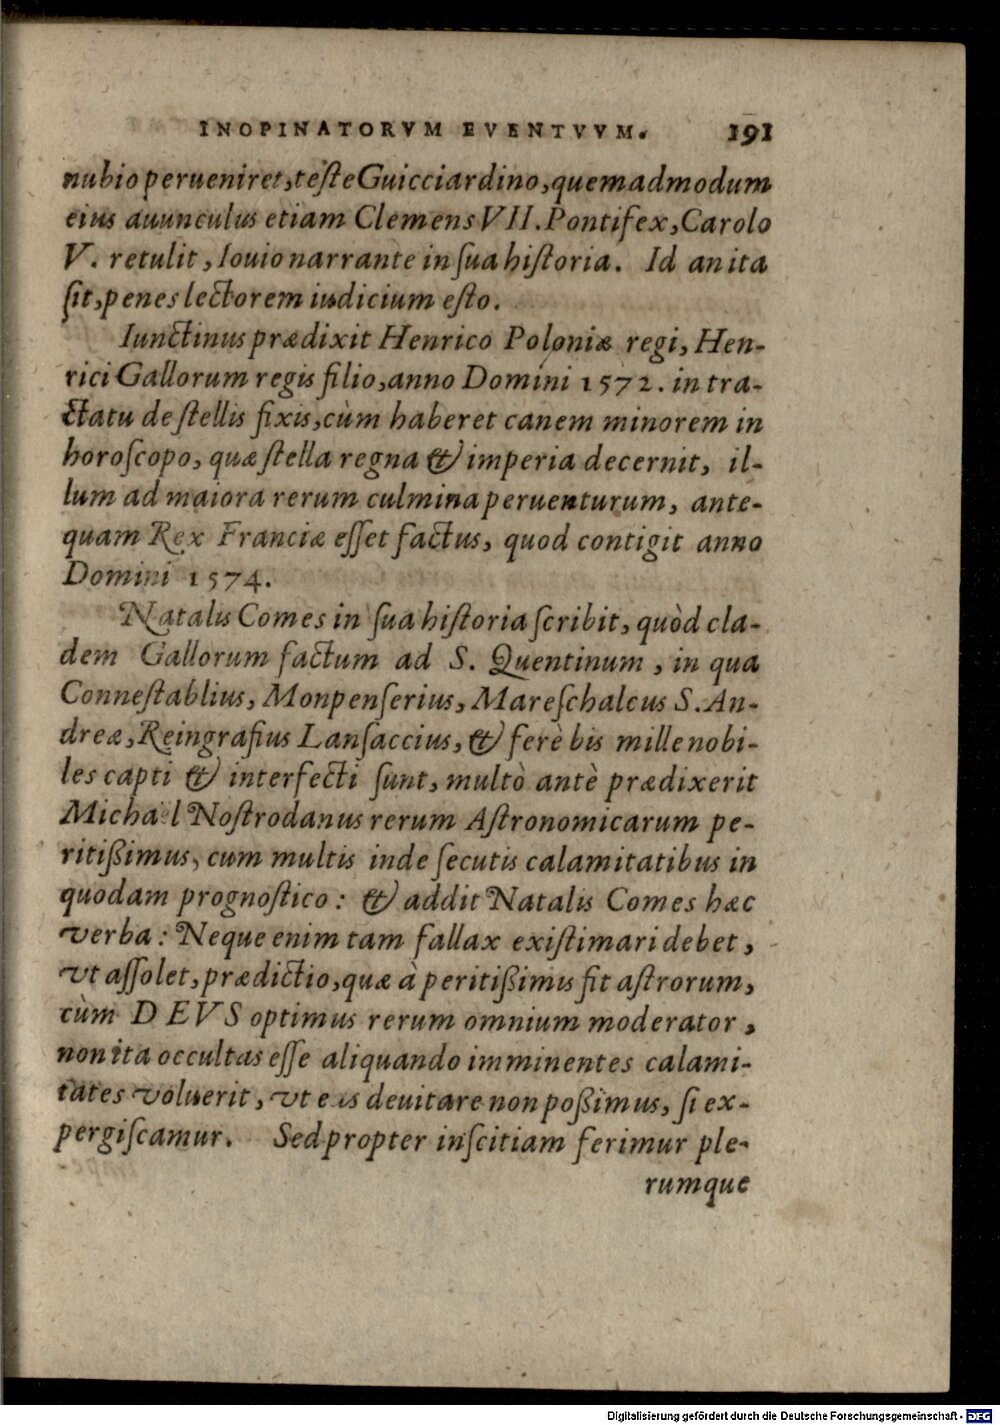 INOPINATORVM EVENTVVM. 191
nubio perueniret, teſte Guicciardino, quemadmodum
eius auunculus etiam Clemens VII. Pontifex, Carolo
V. retulit, Iouio narrante in ſua hiſtoria. Id an ita
ſit, penes lectorem iudicium eſto.
Iunctinus prædixit Henrico Poloniæ regi, Hen-
rici Gallorum regis filio, anno Domini 1572. in tra-
ctatu de ſtellis fixis, cùm haberet canem minorem in
horoſcopo, quæ ſtella regna & imperia decernit, il-
lum ad maiora rerum culmina peruenturum, ante-
quam Rex Franciæ eſſet factus, quod contigit anno
Domini 1574.
Natalis Comes in ſua hiſtoria ſcribit, quòd cla-
dem Gallorum factum ad S. Quentinum, in qua
Conneſtablius, Monpenſerius, Mareſchalcus S. An-
dreæ, Reingrafius Lanſaccius, & ferè bis mille nobi-
les capti & interfecti ſunt, multò antè prædixerit
Michaël Noſtrodanus rerum Aſtronomicarum pe-
ritißimus, cum multis inde ſecutis calamitatibus in
quodam prognoſtico: & addit Natalis Comes hæc
verba: Neque enim tam fallax exiſtimari debet,
vt aſſolet, prædictio, quæ à peritißimis fit aſtrorum,
cùm DEVS optimus rerum omnium moderator,
non ita occultas eſſe aliquando imminentes calami-
tates voluerit, vt eas deuitare non poßimus, ſi ex-
pergiſcamur. Sed propter inſcitiam ferimur ple-
rumque
Digitalisierung gefördert durch die Deutsche Forschungsgemeinschaft - DFG